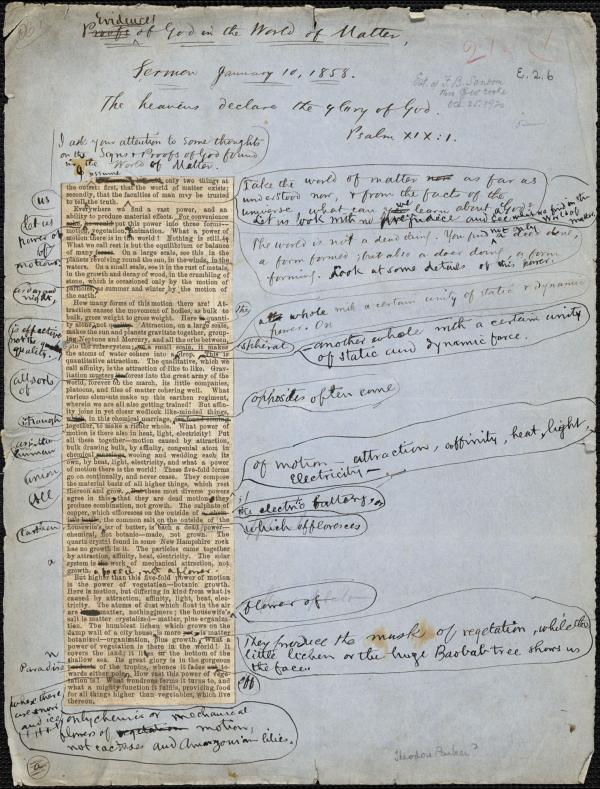 Evidences
Proofs of God in the World of Matter,
Sermon January 10, 1858.
E. 2. 6
The heavens declare the glory of God.
Psalm XIX: 1.
I ask your attention to some thoughts
on the Signs & Proofs of God found
in the World of Matter.
assume only two things at
the outset: first, that the world of matter exists;
secondly, that the faculties of man may be trusted
to tell the truth.
Everywhere we find a vast power, and an
ability to produce material effects. For convenience
put this power into three forms—
motion, vegetation, animation. What a power of
motion there is in the world! Nothing is still.
What we call rest is but the equilibrium or balance
of many. On a large scale, see this in the
planets revolving round the sun, in the winds, in the
waters. On a small scale, see it in the rust of metals,
in the growth and decay of wood, in the crumbling of
stone, which is occasioned only by the motion of
particles, as summer and winter by the motion of
the earth.
How many forms of this motion there are! At-
traction causes the movement of bodies, as bulk to
bulk, gross weight to gross weight. Here quanti-
ty alone, not. Attraction, on a large scale,
makes the sun and planets gravitate together, group-
ing Neptune and Mercury, and all the orbs between,
into the solar system; on a small scale, it makes
the atoms of water cohere into a drop. This is
quantitative attraction. The qualitative, which we
call affinity, is the attraction of like to like. Gravi-
tation musters forces into the great army of the
world, forever on the march, its little companies,
platoons, and files of matter cohering well. What
various elements make up this earthen regiment,
wherein we are all also getting trained! But affin-
ity joins in yet closer wedlock like-minded things,
in this chemical marriage,
together, to make a richer whole. What power of
motion there is also in heat, light, electricity! Put
all these together—motion caused by attraction,
bulk drawing bulk, by affinity, congenial atom in
chemical marriage, wooing and wedding each its
own, by heat, light, electricity, and what a power
of motion there is in the world! These five-fold forms
go on continually, and never cease. They compose
the material basis of all higher things, which rest
thereon and grow. But these most diverse powers
agree in this—that they are dead motion; they
produce combination, not growth. The sulphate of
copper, which effloresces on the outside of
the common salt on the outside of the
housewife's jar of butter, is each a dead power—
chemical, not botanic—made, not grown. The
quartz crystal found in some New Hampshire rock
has no growth in it. The particles came together
by attraction, affinity, heat, electricity. The solar
system is the work of mechanical attraction, not
growth, a posie, not a flower.
But higher than this five-fold power of motion
is the power of vegetation—botanic growth.
Here is motion, but differing in kind from what is
caused by attraction, affinity, light, heat, elec-
tricity. The atoms of dust which float in the air
are matter, nothing more; the housewife's
salt is matter crystalized—matter, plus organiza-
tion. The humblest lichen which grows on the
damp wall of a city house is more—is matter
botanized—organization, plus growth. What a
power of vegetation is there in the world! It
covers the land; it lines the bottom of the
shallow sea. Its great glory is in the gorgeous
of the tropics, whence it fades to-
wards either pole. How vast this power of vege-
tation is! What wondrous forms it turns to, and
what a mighty function it fulfils, providing food
for all things higher than vegetables, which live
thereon.
us
let us
power of
motions
as day and
night,
is effective
not the
quality.
all sorts
of
through
as into
human
union
All
Earthen
a
Paradise
where there
are snow
and ice
only chemic or mechanical
flowers of vegetation motion,
not cactuses and Amazonian lilies.
a
Take the world of matter as far as
understood now, & from the facts of the
universe what can we learn about God?
Let us look with me
The world is not a dead thing. You find not only a work done,
a form formed; but also a doer doing, a form
forming. Look at some details of this power.
the
whole with a certain unity of static & dynamic
power. On
spherical another whole with a certain unity
of static and dynamic force.
opposites often come
of motion — attraction, affinity, heat, light,
electricity —
the electric battery, or
which effloresces
flower of
They produce the musk of vegetation, while the
little lichen or the huge Baobab tree shows us
the face.
Theodore Parker?